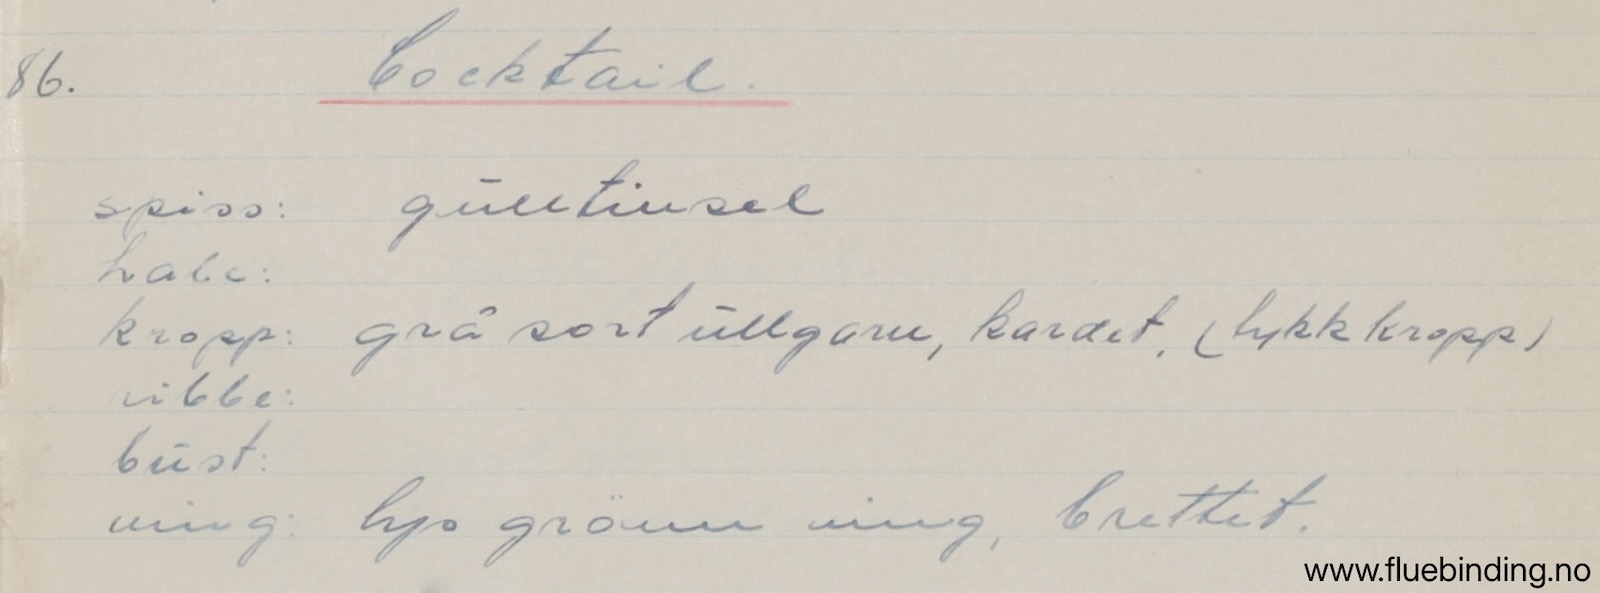 86. Cocktail.
spiss: gülltinsel
hale:
kropp: grå sort üllgarn, kardet. (tykk kropp)
ribbe:
büst:
ving: lys grönn ving, brettet.
www.fluebinding.no